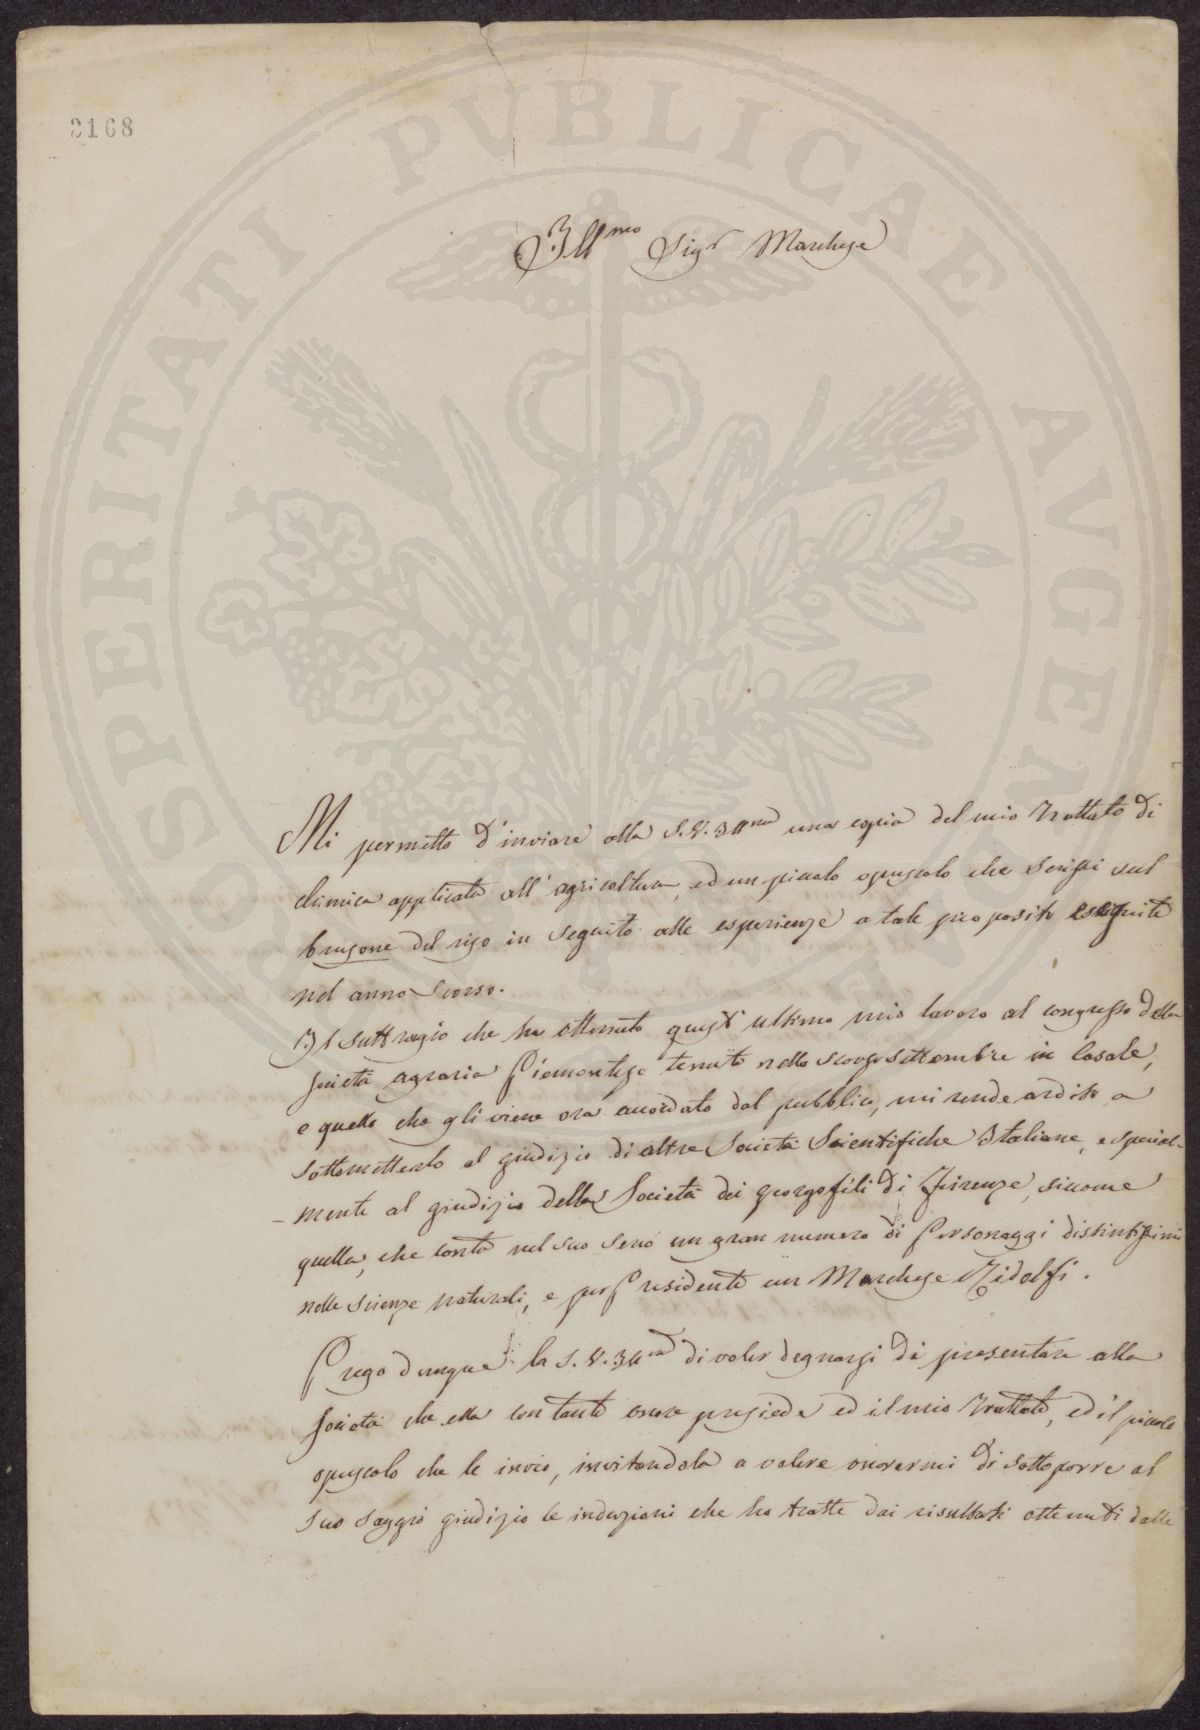 2168
PROSPERITATI PVBLICAE AVGENDAE
Ill.mo Sig.r Marchese
Mi permetto d'inviare alla S.V. Ill.ma una copia del mio Trattato di
chimica applicata all'agricoltura, ed un piccolo opuscolo che scrissi sul
brusone del riso in seguito alle esperienze a tale proposito eseguite
nel anno scorso.
Il suffragio che ha ottenuto quest'ultimo mio lavoro al congresso della
Società agraria Piemontese tenuto nello scorso settembre in Casale,
e quello che gli viene ora accordato dal pubblico, mi rende ardito a
sottometterlo al giudizio di altre Società Scientifiche Italiane, e special-
-mente al giudizio della Società dei georgofili di Firenze, siccome
quella, che conta nel suo seno un gran numero di Personaggi distintissimi
nelle scienze naturali, e per Presidente un Marchese Ridolfi.
Prego dunque la S.V. Ill.ma di voler degnarsi di presentare alla
Società che ella con tanto onore presiede ed il mio Trattato, ed il piccolo
opuscolo che le invio, invitandola a volere onorarmi di sottoporre al
suo saggio giudizio le induzioni che ho tratte dai risultati ottenuti dalle